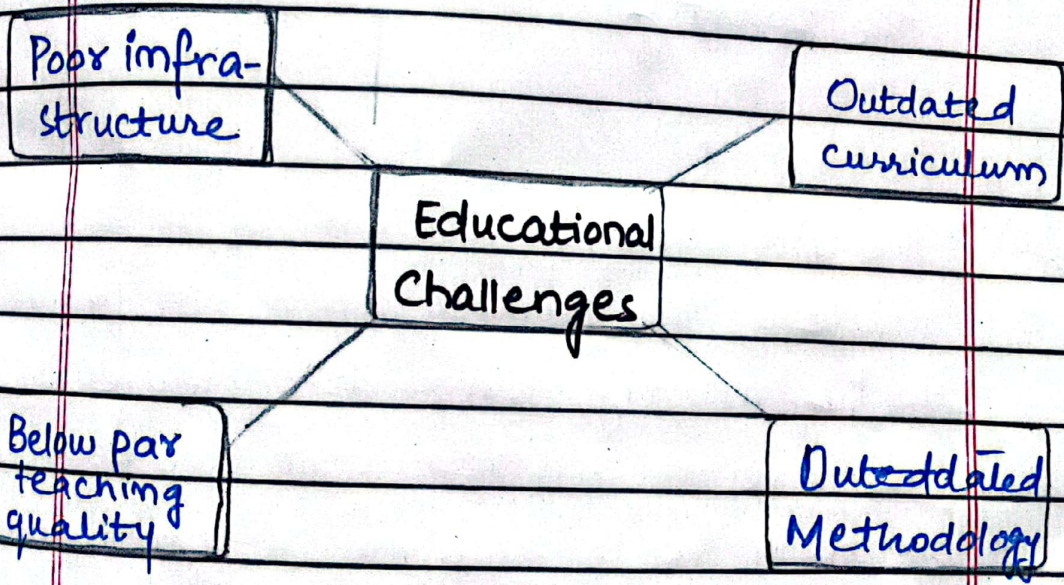 Poor infra-
structure
Outdated
curriculum
Educational
Challenges
Below par
teaching
quality
Outeddated
Methodology